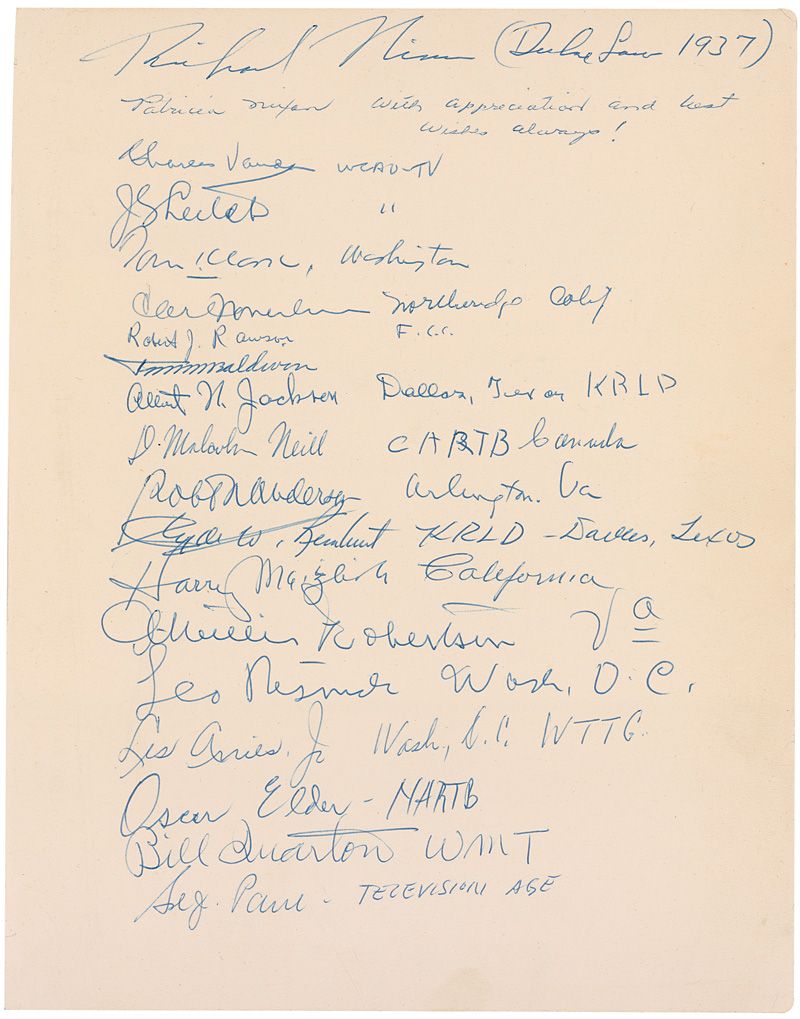 Richard Nixon (Duke Law 1937)
Patricia Nixon with appreciation and best
wishes always!
Charles Vanda WCAU-TV
"
Tom Clark, Washington
Northridge Calif
Robert J. Rawson F.C.C.
Albert N. Jackson Dallas, Texas KRLD
D. Malcolm Neill CARTB Canada
Robt N Anderson Arlington. Va
Clyde W. Rembert KRLD - Dallas, Texas
Harry Maizlish California
A Willis Robertson Va
Leo Resnick Wash, D.C.
Les Arries, Jr Wash, D.C. WTTG
Oscar Elder - NARTB
Bill Quarton WMT
- TELEVISION AGE